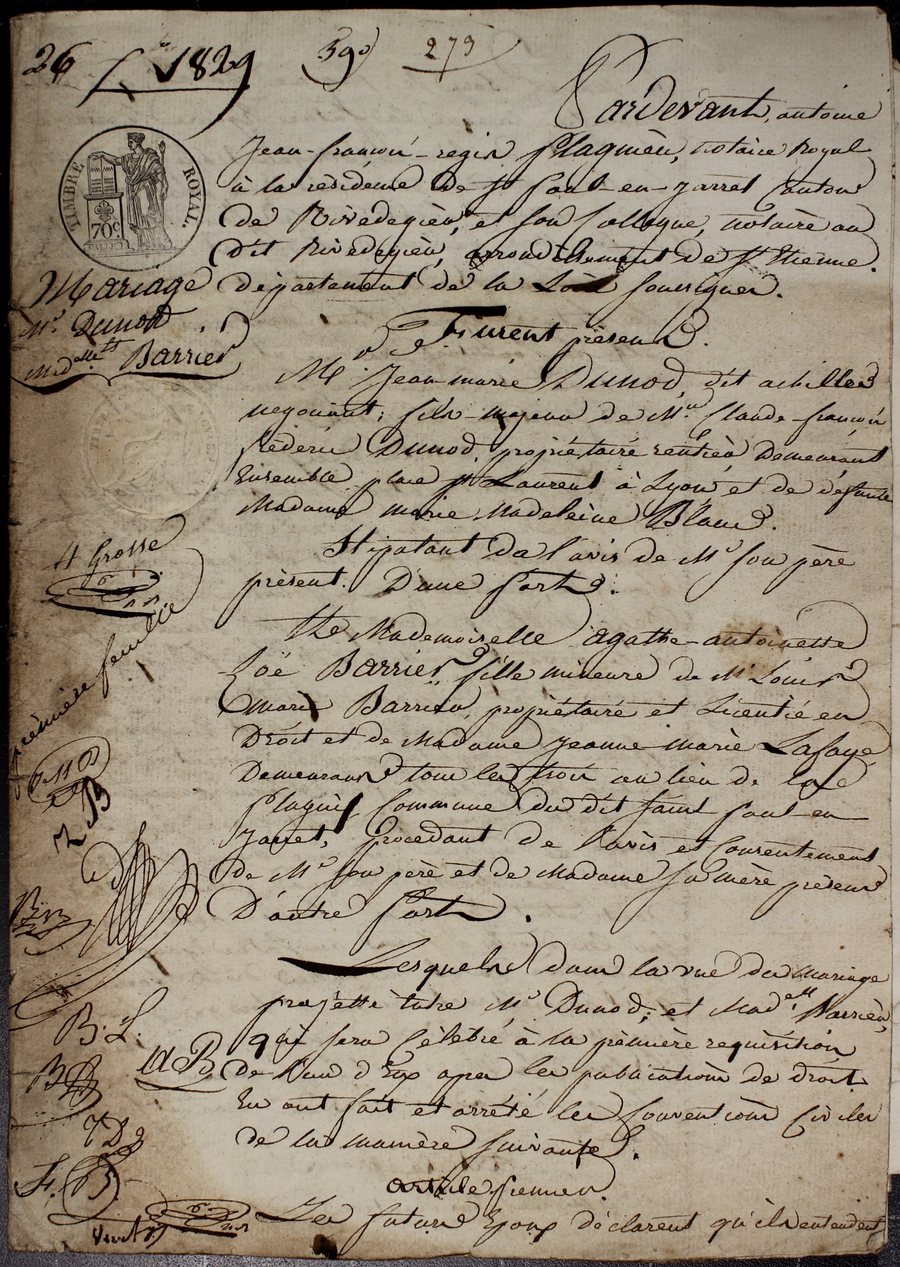 26 1829 39e 273
Pardevant, antoine
Jean-françois-regis plagnieu, notaire Royal
à la résidence de St paul-en-jarret Canton
de Rivedegier, et son Collegue, notaire au
dit Rivedegier, arrondissement de St Etienne.
département de la Loire soussignés.
TIMBRE ROYAL.
70c
Mariage
Mr Dunod
Madelle Barrier
Furent présens
Mr Jean-marie Dunod, dit achille
négociant, fils-majeur de Mr Claude-françois
fréderic Dunod, propriétaire rentier, demeurant
Ensemble place St Laurent à Lyon et de défunte
Madame marie Madeleine Blanc.
Stipulant de l'avis de Mr son père
présent. D'une part.
Et Mademoiselle agathe-antoinette
Zoë Barrier, fille mineure de Mr Louis
Marie Barrier, propriétaire et Licentié en
Droit et de Madame Jeanne marie Lafaye
Demeurans tous les trois au lieu de la
Commune du dit Saint paul en
Jarret, procédant de l'avis et Consentement
de Mr son père et de Madame sa mère présens
D'autre part.
4 Grosse
première feuille
Z B
B. L.
A B
F. B
Lesquels dans la vue du mariage
projetté entre Mr Dunod, et Madelle Barrier,
qui sera Célébré à la première requisition
de l'un d'Eux apres les publications de droit
En ont fait et arrété les Conventions Civiles
de la manière suivante.
article premier.
Les futurs Epoux déclarent qu'ils entendent